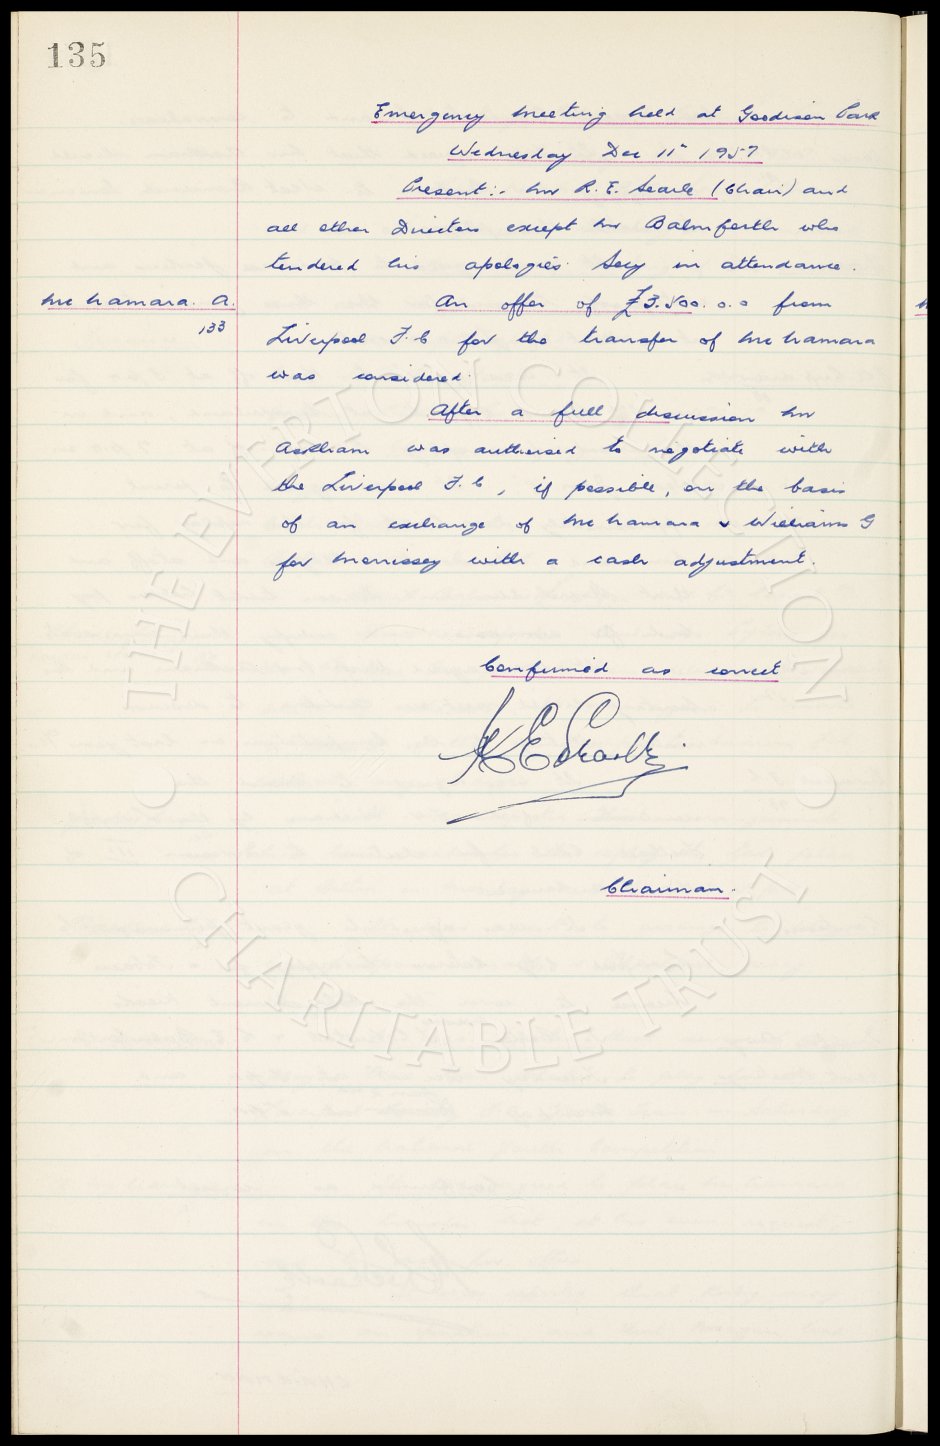 135
Emergency Meeting held at Goodison Park
Wednesday Dec 11th 1957
Present:- Mr R. E. Searle (Chair) and
all other Directors except Mr Balmforth who
tendered his apologies. Secy in attendance.
McNamara. A.
133
An offer of £3.500.0.0 from
Liverpool F.C for the transfer of McNamara
was considered.
After a full discussion Mr
Askham was authorised to negotiate with
the Liverpool F.C, if possible, on the basis
of an exchange of McNamara & Williams G
for Morrissey with a cash adjustment.
Confirmed as correct
R E Searle
Chairman.
THE EVERTON COLLECTION
CHARITABLE TRUST